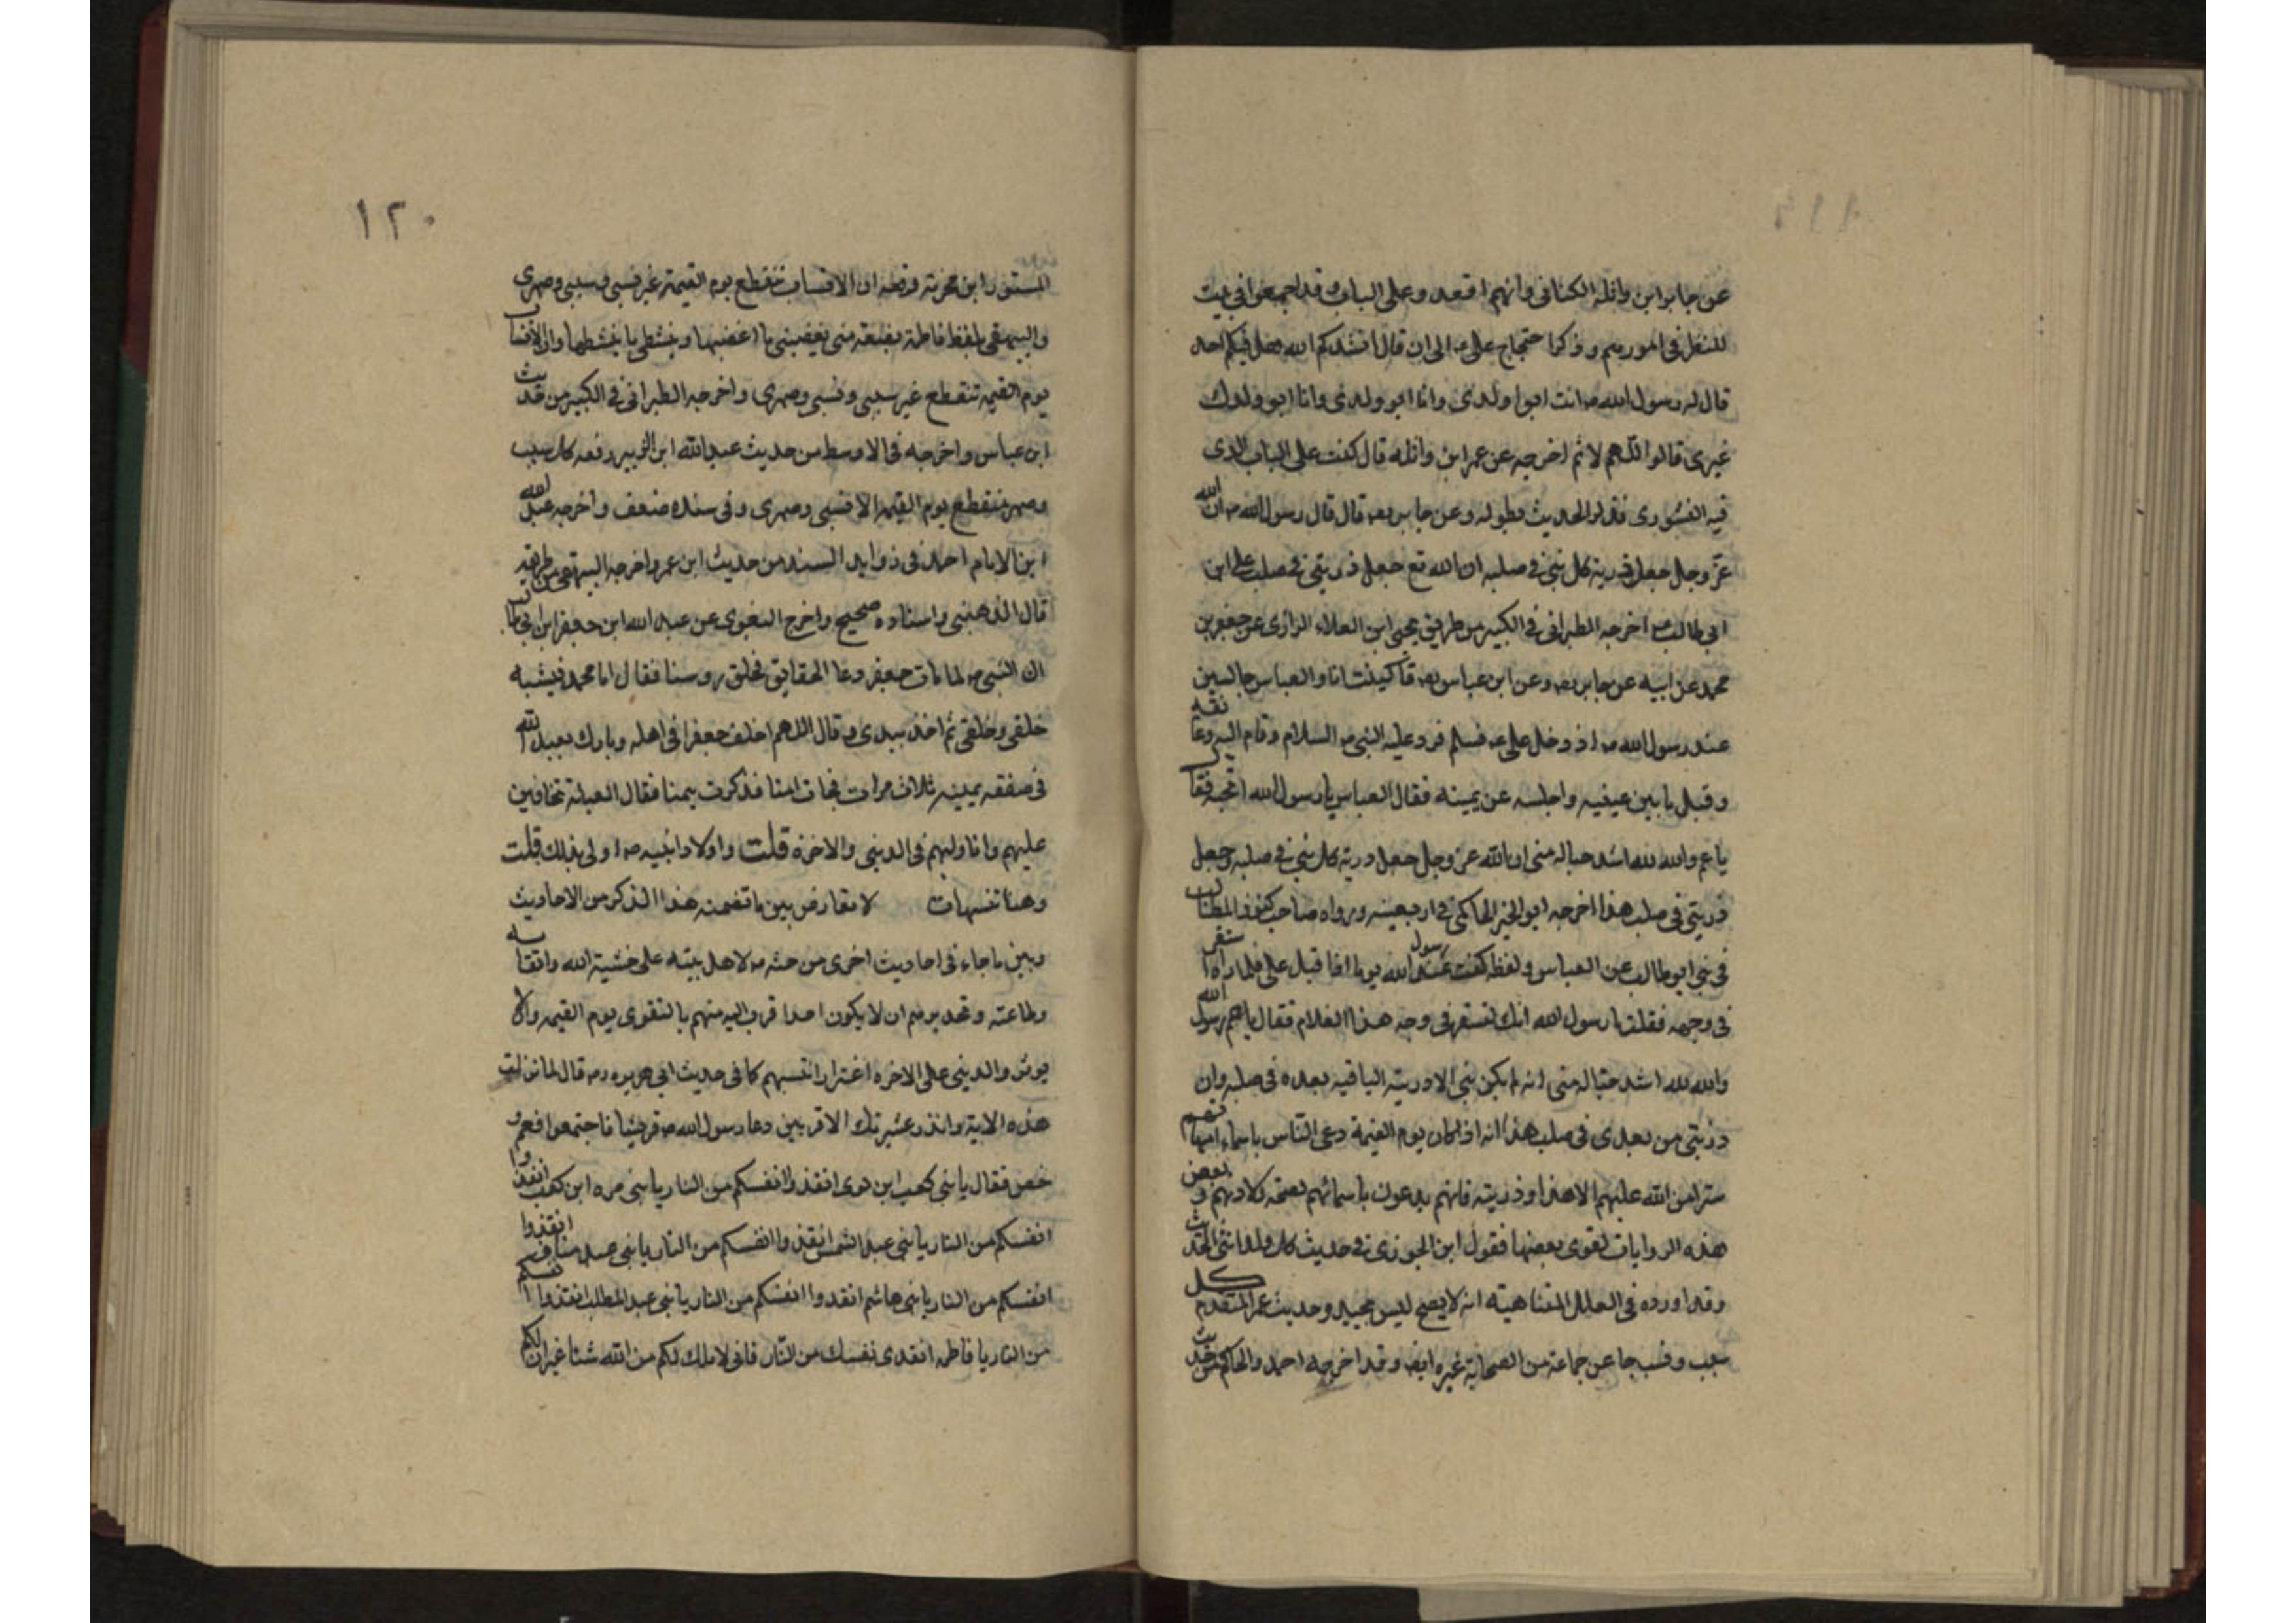 عن جابر ابن واثلة الكنانى وانهم اقعدوه على الباب وقد اجمعوا فى بيت
للنظر فى امورهم وذكر احتجاج على عه الى ان قال انشدكم الله هل فيكم احد
قال له رسول الله صه انت ابوا ولدى وانا ابو ولدى وانا ابو ولدك
غيرى قالوا اللهم لا ثم اخرجه عن عمر ابن واثله قال كنت على الباب الذى
فيه الشورى فذكر الحديث بطوله وعن جابر رضه قال قال رسول الله صه ان الله
عزّ وجل جعل ذرية كل نبى فى صلبه ان الله تع جعل ذريتى فى صلب على ابن
ابى طالب عه اخرجه الطبرانى فى الكبير من طريق يحيى ابن العلاء الرازى عن جعفر بن
محمد عن ابيه عن جابر رضه وعن ابن عباس رضه قال كنت انا والعباس جالسين
عند رسول الله صه اذ دخل على عه فسلم فرد عليه النبى صه السلام وقام اليه وعانقه
وقبل ما بين عينيه واجلسه عن يمينه فقال العباس يا رسول الله اتحبه فقال
يا عم والله لله اشد حبا له منى ان الله عز وجل جعل درية كل نبى فى صلبه وجعل
ذريتى فى صلب هذا اخرجه ابو الخير الحاكمى فى اربعينه ورواه صاحب كنوز المطالب
فى بنى ابو طالب عن العباس ولفظه كنت عند رسول الله يوما اذا قبل على فلما راه استقر
فى وجهه فقلت يا رسول الله انك لتسفر فى وجه هذا الغلام فقال يا عم رسول الله
والله لله اشد حبا له منى انه لم يكن نبى الا دريته الباقيه بعده فى صلبه وان
ذريتى من بعدى فى صلب هذا انه اذا كان يوم القيمة دعى الناس باسماء امهاتهم
سترا من الله عليهم الا هذا وذريته فانهم يدعون باسمائهم لصحة ولادتهم وبعض
هذه الروايات تقوى بعضها فقول ابن الجوزى فى حديث كل ولد انثى الحديث
وقد اورده فى العلل المتناهيته انه لا يصح ليس بجيد وحديث عمر المتقدم كل
سبب ونسب جا عن جماعة من الصحابة غيره ايضا وقد اخرجه احمد والحاكم من حديث
١٢٠
المستور ابن مخرمة رفعه ان الانساب تنقطع يوم القيمة غير نسبى وسببى وصهرى
والبيهقى بلفظ فاطمة بضعة منى يغضبنى ما اغضبها وينشطنى ما ينشطها وان الانساب
يوم القيمة تنقطع غير سببى ونسبى وصهرى واخرجه الطبرانى فى الكبير من حديث
ابن عباس واخرجه فى الاوسط من حديث عبد الله ابن الزبير رفعه كل سبب
وصهر منقطع يوم القيمة الا نسبى وصهرى وفى سنده ضعف واخرجه عبد الله
ابن الامام احمد فى زوايد المسند من حديث ابن عمر واخرجه البيهقى من طريقه
قال الذهبى واسناده صحيح واخرج البغوى عن عبد الله ابن جعفر ابن ابى طالب
ان النبى صه لما مات جعفر دعا الحقايق فحلق روسنا فقال اما محمد فيشبه
خلقى وخلقى ثم اخذ بيدى وقال اللهم اخلف جعفرا فى اهله وبارك لعبد الله
فى صفقه يمينه ثلاث مرات فجات امنا فذكرت يتمنا فقال العيلة تخافين
عليهم وانا وليهم فى الدينى والاخرة قلت واولاد ابنيه صه اولى بذلك قلت
وهنا تنبيهات لا تعارض بين ما تضمنه هذا الذكر من الاحاديث
وبين ما جاء فى احاديث اخرى من حثه صه لاهل بيته على خشية الله واتقاسه
وطاعته وتحذيرهم ان لا يكون احدا قرب اليه منهم بالتقوى يوم القيمه والا
يوثروالدينى على الاخره اغترارا بنسبهم كما فى حديث ابى هريره رضه قال لما نزلت
هذه الاية وانذر عشيرتك الاقربين دعا رسول الله صه قريشا فاجتمعوا فعم و
خص فقال يا بنى كعب ابن لوى انقذوا انفسكم من النار يا بنى مره ابن كعب انقذوا
انفسكم من النار يا بنى عبد الشمس انقذوا انفسكم من النار يا بنى عبد مناف انقذوا
انفسكم من النار يا بنى هاشم انقدوا انفسكم من النار يا بنى عبد المطلب انقذوا انفسكم
من النار يا فاطمه انقدى نفسك من النّار فانى لا املك لكم من الله شئا غير ان لكم